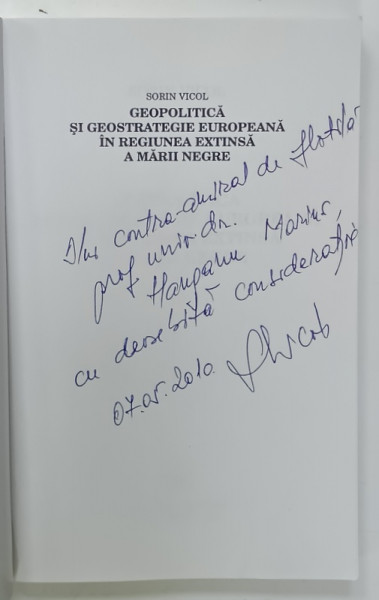 SORIN VICOL
GEOPOLITICĂ
ȘI GEOSTRATEGIE EUROPEANĂ
ÎN REGIUNEA EXTINSĂ
A MĂRII NEGRE
Dlui contra-amiral de flotilă
prof. univ. dr.
Hanganu Marius,
cu deosebită considerație
07.05.2010.